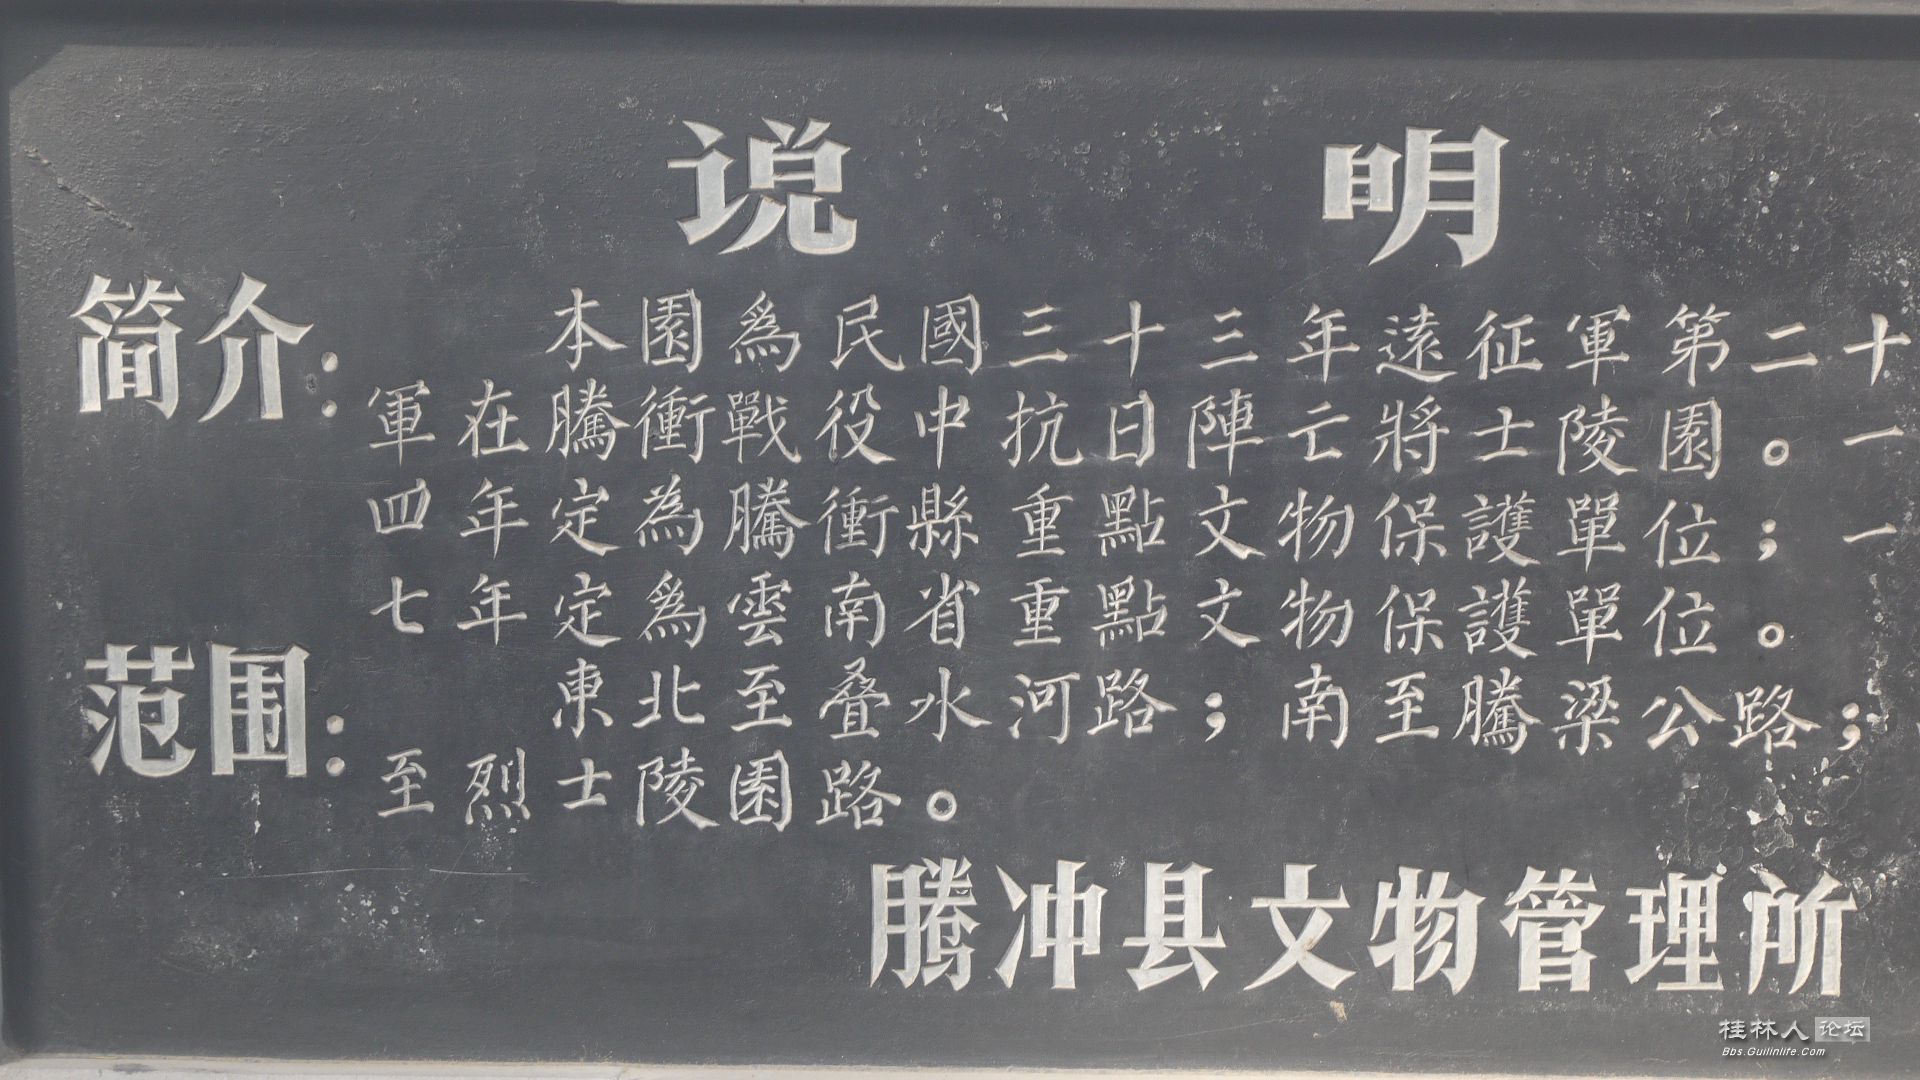 说明
简介：
本園為民國三十三年遠征軍第二十
軍在騰衝戰役中抗日陣亡將士陵園。一
四年定為騰衝縣重點文物保護單位；一
七年定為雲南省重點文物保護單位。
范围：
東北至叠水河路；南至騰梁公路；
至烈士陵園路。
腾冲县文物管理所
桂林人论坛
Bbs.Guilinlife.Com